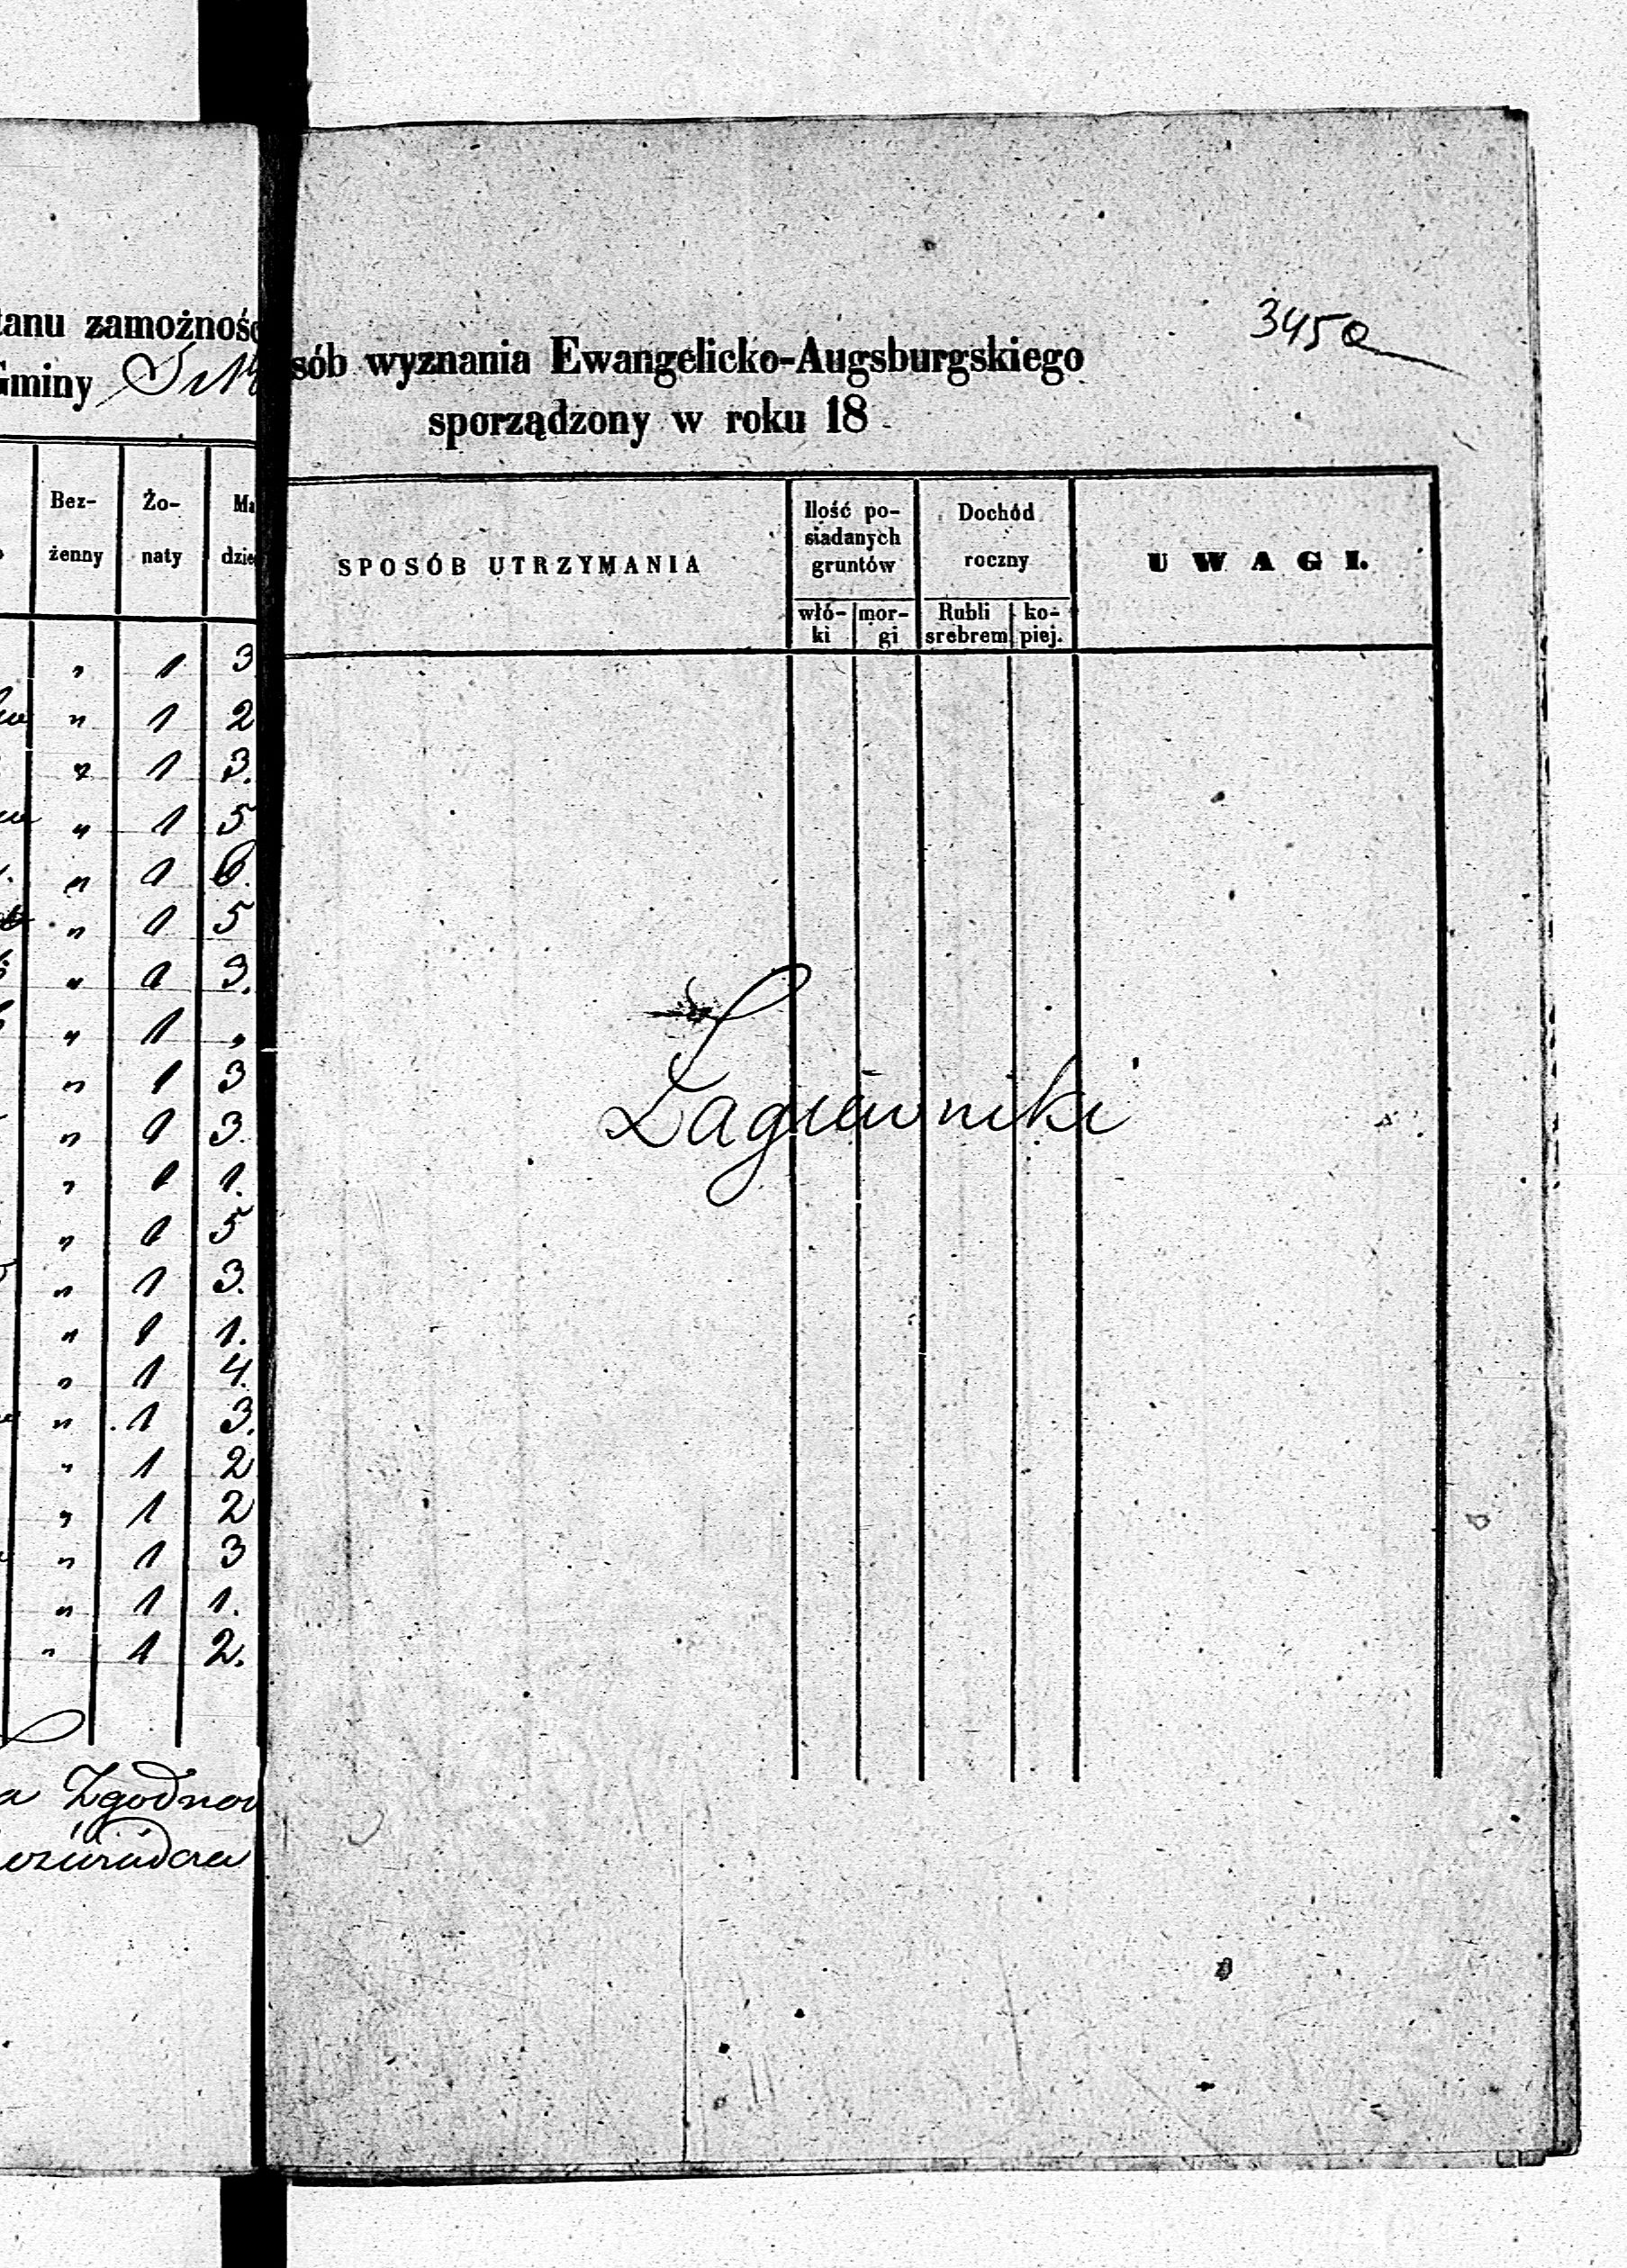 tanu zamożnoś
Gminy
Bez-
żenny
Żo-
naty
Ma
dzie
„ 1 3
„ 1 2
„ 1 3.
„ 1 5
„ 1 6.
„ 1 5
„ 1 3.
„ 1 „
„ 1 3
„ 1 3.
„ 1 1.
„ 1 5
„ 1 3.
„ 1 1.
„ 1 4.
„ 1 3.
„ 1 2
„ 1 2
„ 1 3
„ 1 1.
„ 1 2.
a Zgodnoś
345a
sób wyznania Ewangelicko-Augsburgskiego
sporządzony w roku 18
SPOSÓB UTRZYMANIA
Ilość po-
siadanych
gruntów
włó-
ki
mor-
gi
Dochód
roczny
Rubli
srebrem
ko-
piej.
UWAGI.
Łagiewniki